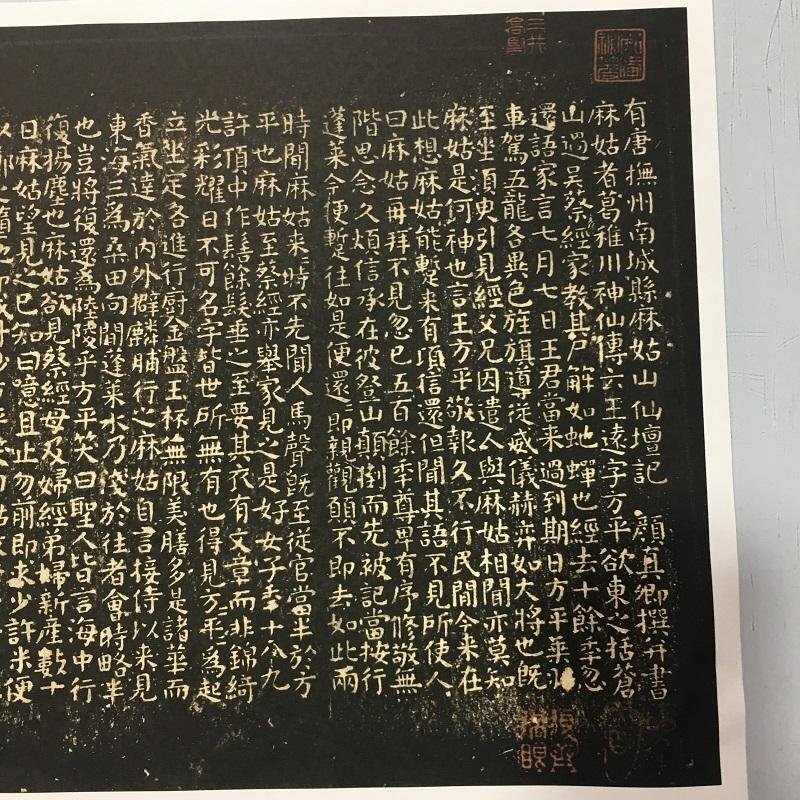 有唐撫州南城縣麻姑山仙壇記 顏真卿撰并書
麻姑者葛稚川神仙傳云王遠字方平欲東之括蒼
山過吳蔡經家教其尸解如虵蟬也經去十餘年忽
還語家言七月七日王君當来過到期日方平乘
車駕五龍各異色旌旗導從威儀赫弈如大將也既
至坐須臾引見經父兄因遣人與麻姑相聞亦莫知
麻姑是何神也言王方平敬報久不行民間今来在
此想麻姑能蹔来有頃信還但聞其語不見所使人
曰麻姑再拜不見忽已五百餘年尊卑有序修敬無
階思念久煩信承在彼登山顛倒而先被記當按行
蓬萊今便蹔往如是便還〻即親觀願不即去如此兩
時間麻姑来〻時不先聞人馬聲既至從官當半於方
平也麻姑至蔡經亦舉家見之是好女子年十八九
許頂中作髻餘髮垂之至要其衣有文章而非錦綺
光彩耀日不可名字皆世所無有也得見方平〻〻為起
立坐定各進行厨金盤玉杯無限美膳多是諸華而
香氣達於內外擗麟脯行之麻姑自言接侍以来見
東海三為桑田向間蓬萊水乃淺於往者會時略半
也豈將復還為陸陵乎方平笑曰聖人皆言海中行
復揚塵也麻姑欲見蔡經母及婦經弟婦新産數十
日麻姑望見之已知曰噫且止勿前即求少許米便